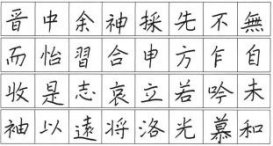 晋中余神採先不無
而怡習合申方乍自
收是志哀立若吟未
袖以遠将洛光慕和